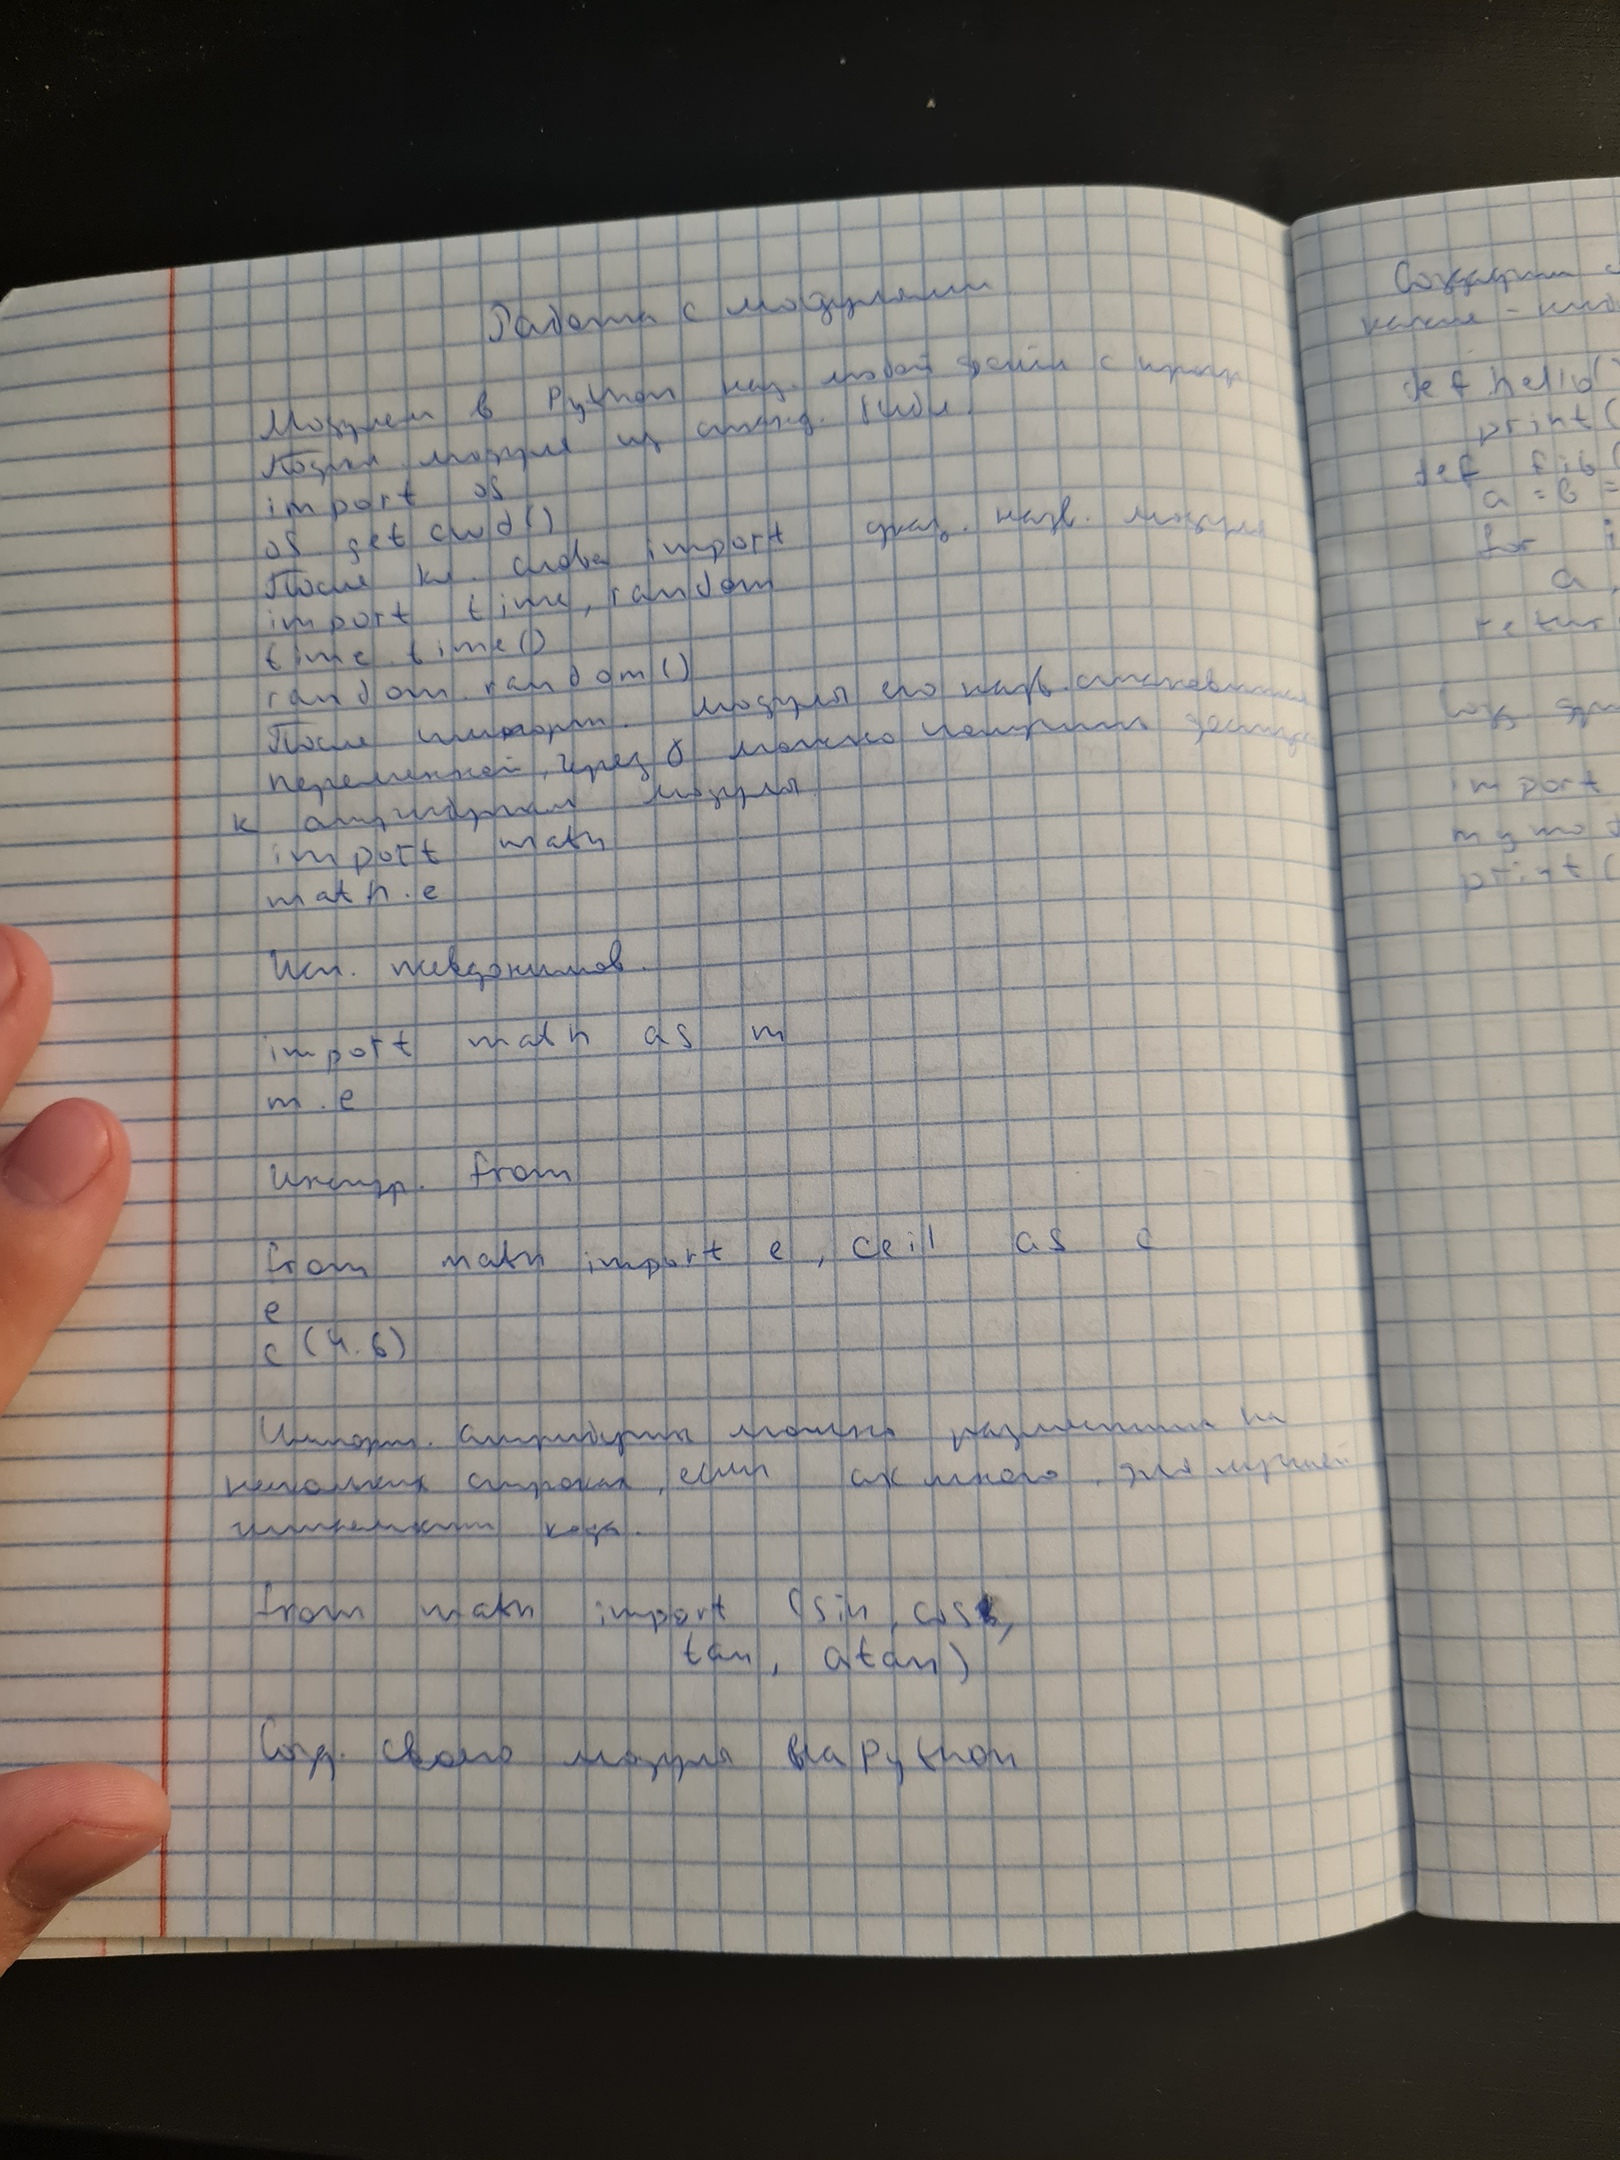 Работа с модулями
Модулем в Python наз. любой файл с прогр
Подкл модуля из станд. библ.
import os
os getcwd()
После кл. слова import указ. назв. модуля
import time, random
time.time()
random.random()
После импорт. модуля его назв. становится
переменной, через б можно получить доступ
к атрибутам модуля.
import math
math.e
Исп. псевдонимов.
import math as m
m.e
Инстр. from
from math import e, ceil as c
e
c(4.6)
Импорт. атрибуты можно разместить на
нескольких строках, если их много, для лучшей
читаемости кода.
from math import (sin, cos,
tan, atan)
Созд. своего модуля на Python
Создадим
какие-либо
def hello(
print(
def fib(
a = b =
for i
a,
retur
Созд. фун
import
mymod
print(